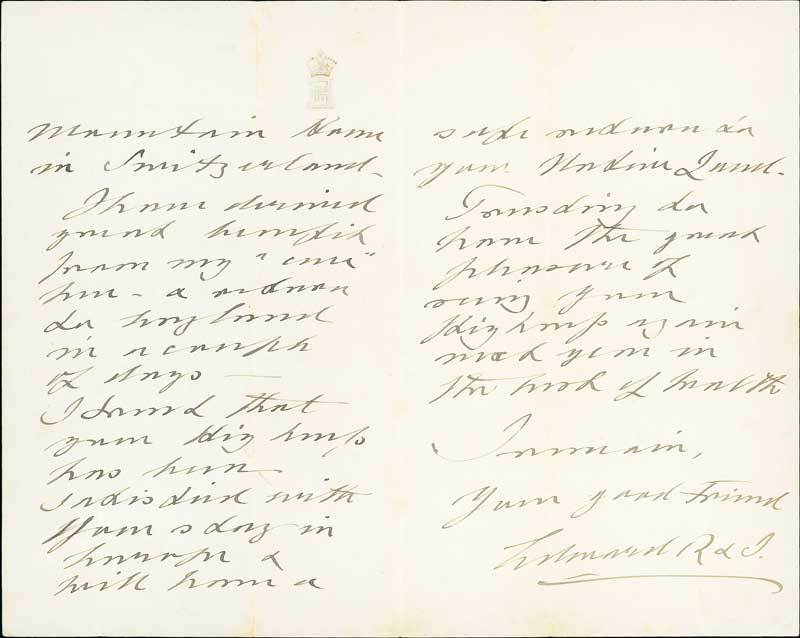 Mountain Home
in Switzerland.
I have derived
great benefit
from my "cure"
here - & return
to England
in a couple
of days —
I trust that
your Highness
has been
satisfied with
Your stay in
Europe &
will have a
safe return to
your Native Land.
Trusting to
have the great
pleasure of
seeing Your
Highness again
next year in
the best of health
I remain,
Your good Friend
Edward R & I.